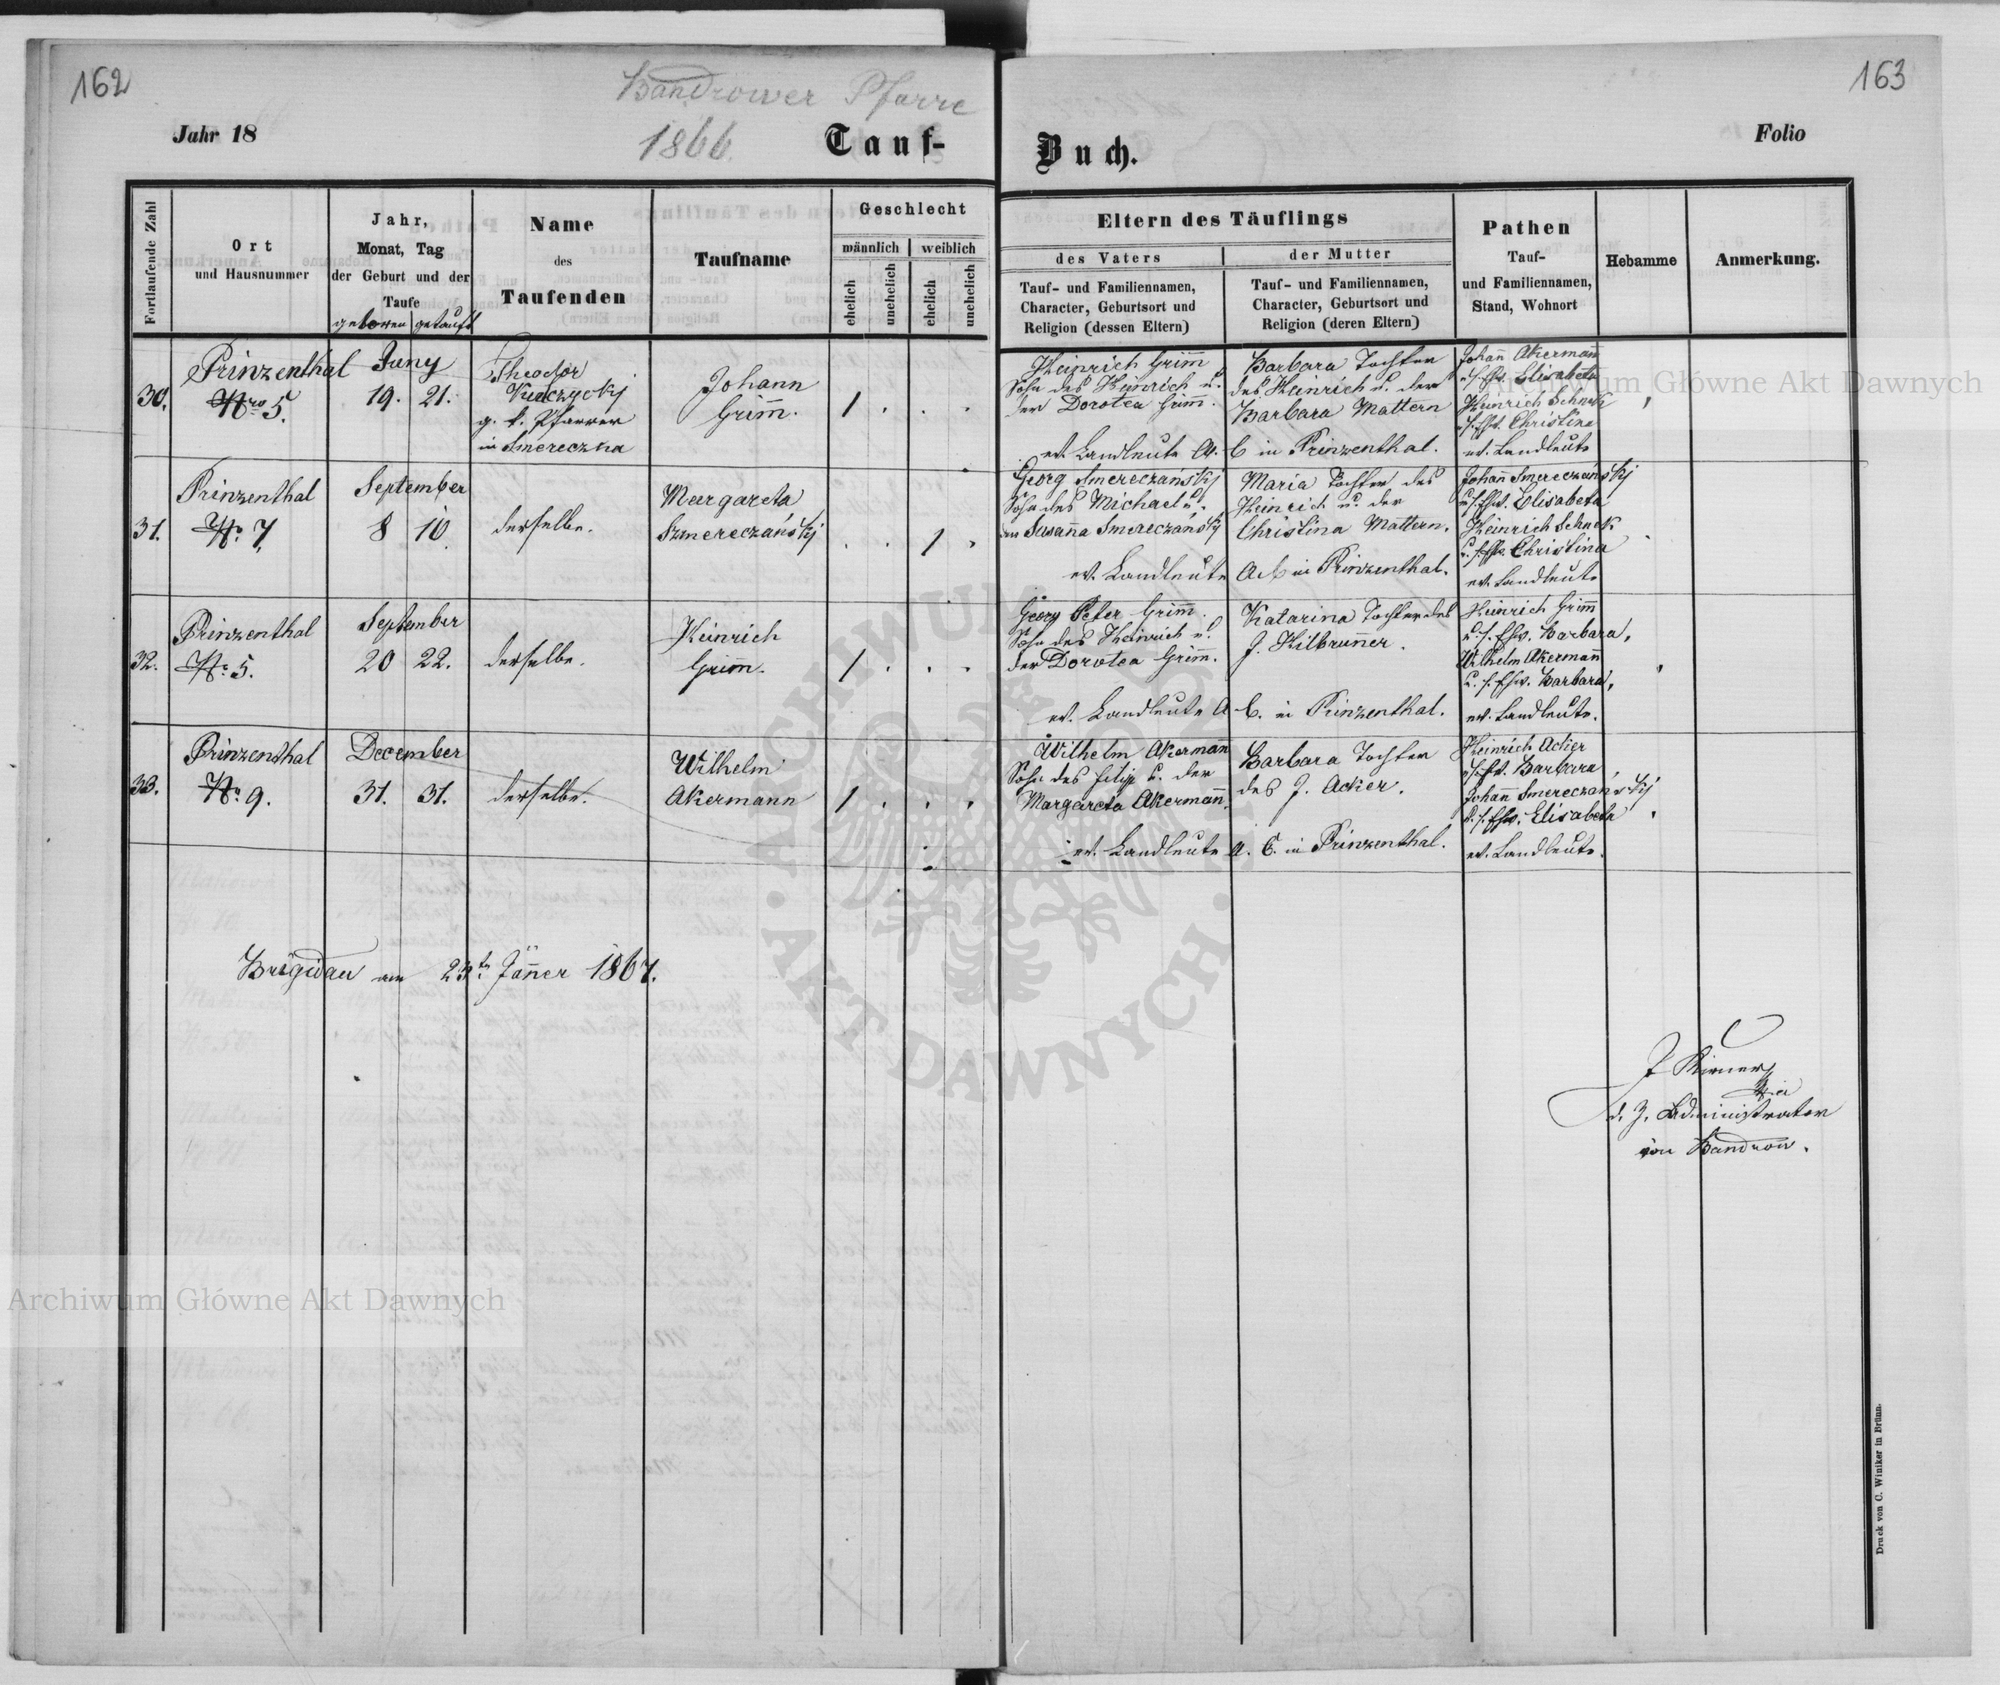 162
163
Bandrower Pfarre
Jahr 18
1866.
Tauf-
Buch.
Folio
Fortlaufende Zahl
Ort
und Hausnummer
Jahr,
Monat, Tag
der Geburt und der
Taufe
geboren getauft
Name
des
Taufenden
Taufname
Geschlecht
männlich
weiblich
ehelich
unehelich
ehelich
unehelich
Eltern des Täuflings
des Vaters
Tauf- und Familiennamen,
Character, Geburtsort und
Religion (dessen Eltern)
der Mutter
Tauf- und Familiennamen,
Character, Geburtsort und
Religion (deren Eltern)
Pathen
Tauf-
und Familiennamen,
Stand, Wohnort
Hebamme
Anmerkung.
30.
Prinzenthal
Nro 5.
Juny
19. 21.
Theodor
Kulczycky
g. k. Pfarrer
in Smereczka
Johann
Grim̄.
1
Heinrich Grim̄
Sohn des Heinrich u.
der Dorotea Grim̄.
Barbara Tochter
des Heinrich u. der
Barbara Mattern
ev. Landleute A. C in Prinzenthal.
Johan̄ Akerman̄
u. s. Ehw. Elisabeta
Heinrich Schnek
u. s. Ehw. Christina
ev. Landleute
31.
Prinzenthal
No. 7
September
8 10.
derselbe.
Margareta
Szmereczański
1
Georg Smereczański
Sohn des Michael u.
der Susan̄a Smereczański
Maria Tochter des
Heinrich u. der
Christina Mattern.
ev. Landleute A C in Prinzenthal.
Johan̄ Smereczański
u. s. Ehw. Elisabeta
Heinrich Schnek
u. s. Ehw. Christina
ev. Landleute
32.
Prinzenthal
No. 5.
September
20 22.
derselbe.
Heinrich
Grim̄.
1
Georg Peter Grim̄.
Sohn des Heinrich u.
der Dorotea Grim̄.
Katarina Tochter des
J. Hilbrun̄er.
ev. Landleute A C. in Prinzenthal.
Heinrich Grim̄
u. s. Ehw. Barbara,
Wilhelm Akerman̄
u. s. Ehw. Barbara,
ev. Landleute.
33.
Prinzenthal
No. 9.
December
31. 31.
derselbe.
Wilhelm
Akermann
1
Wilhelm Akerman̄
Sohn des Filip u. der
Margareta Akerman̄.
Barbara Tochter
des J. Acker.
ev. Landleute A. C. in Prinzenthal.
Heinrich Acker
u. s. Ehw. Barbara,
Johan̄ Smereczański
u. s. Ehw. Elisabeta
ev. Landleute.
Brigidau am 23tn Jän̄er 1867.
d. Z. Administrator
von Bandrow.
Druck von C. Winiker in Brünn.
Archiwum Główne Akt Dawnych
Archiwum Główne Akt Dawnych
ARCHIWUM GŁÓWNE
AKT DAWNYCH